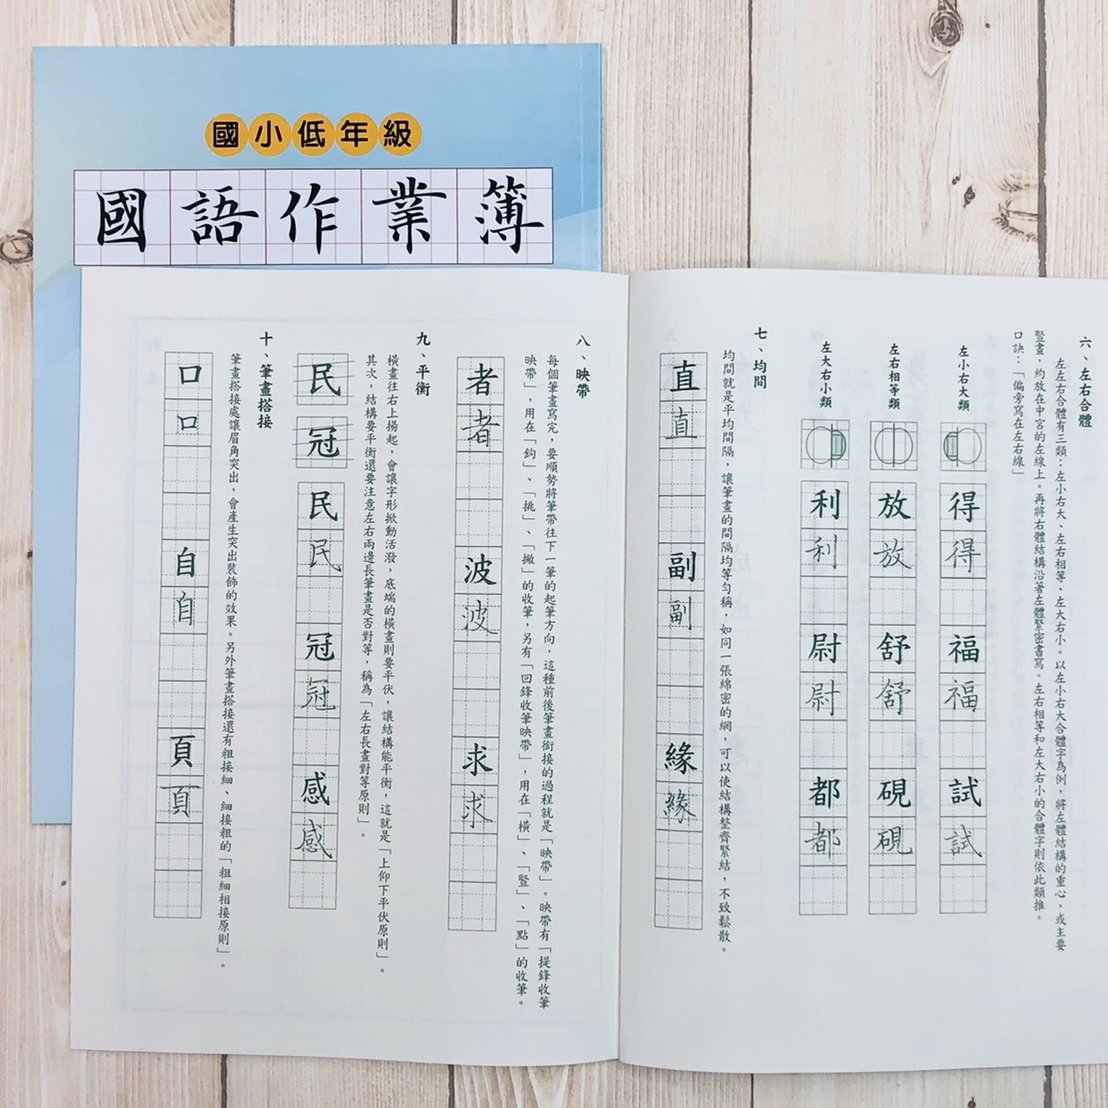 國小低年級
國語作業簿
六、左右合體
左右合體有三類：左小右大、左右相等、左大右小。以左小右大合體字為例，將左體結構的重心，或主要
豎畫，約放在中宮的左線上。再將右體結構沿著左體緊密書寫。左右相等和左大右小的合體字則依此類推。
口訣：「偏旁寫在左右線」
左小右大類
得得
福福
試試
左右相等類
放放
舒舒
硯硯
左大右小類
利利
尉尉
都都
七、均間
均間就是平均間隔，讓筆畫的間隔均等勻稱，如同一張綿密的網，可以使結構整齊緊結，不致鬆散。
直直
副副
緣緣
八、映帶
每個筆畫寫完，要順勢將筆帶往下一筆的起筆方向，這種前後筆畫銜接的過程就是「映帶」。映帶有「提鋒收筆
映帶」，用在「鉤」、「挑」、「撇」的收筆，另有「回鋒收筆映帶」，用在「橫」、「豎」、「點」的收筆。
者者
波波
求求
九、平衡
橫畫往右上揚起，會讓字形掀動活潑，底端的橫畫則要平伏，讓結構能平衡，這就是「上仰下平伏原則」。
其次，結構要平衡還要注意左右兩邊長筆畫是否對等，稱為「左右長畫對等原則」。
民
冠
民民
冠冠
感感
十、筆畫搭接
筆畫搭接處讓眉角突出，會產生突出裝飾的效果。另外筆畫搭接還有粗接細、細接粗的「粗細相接原則」。
口口
自自
頁頁